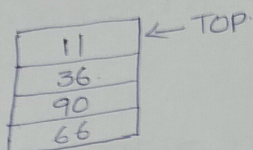 11 ← TOP.
36.
90
66